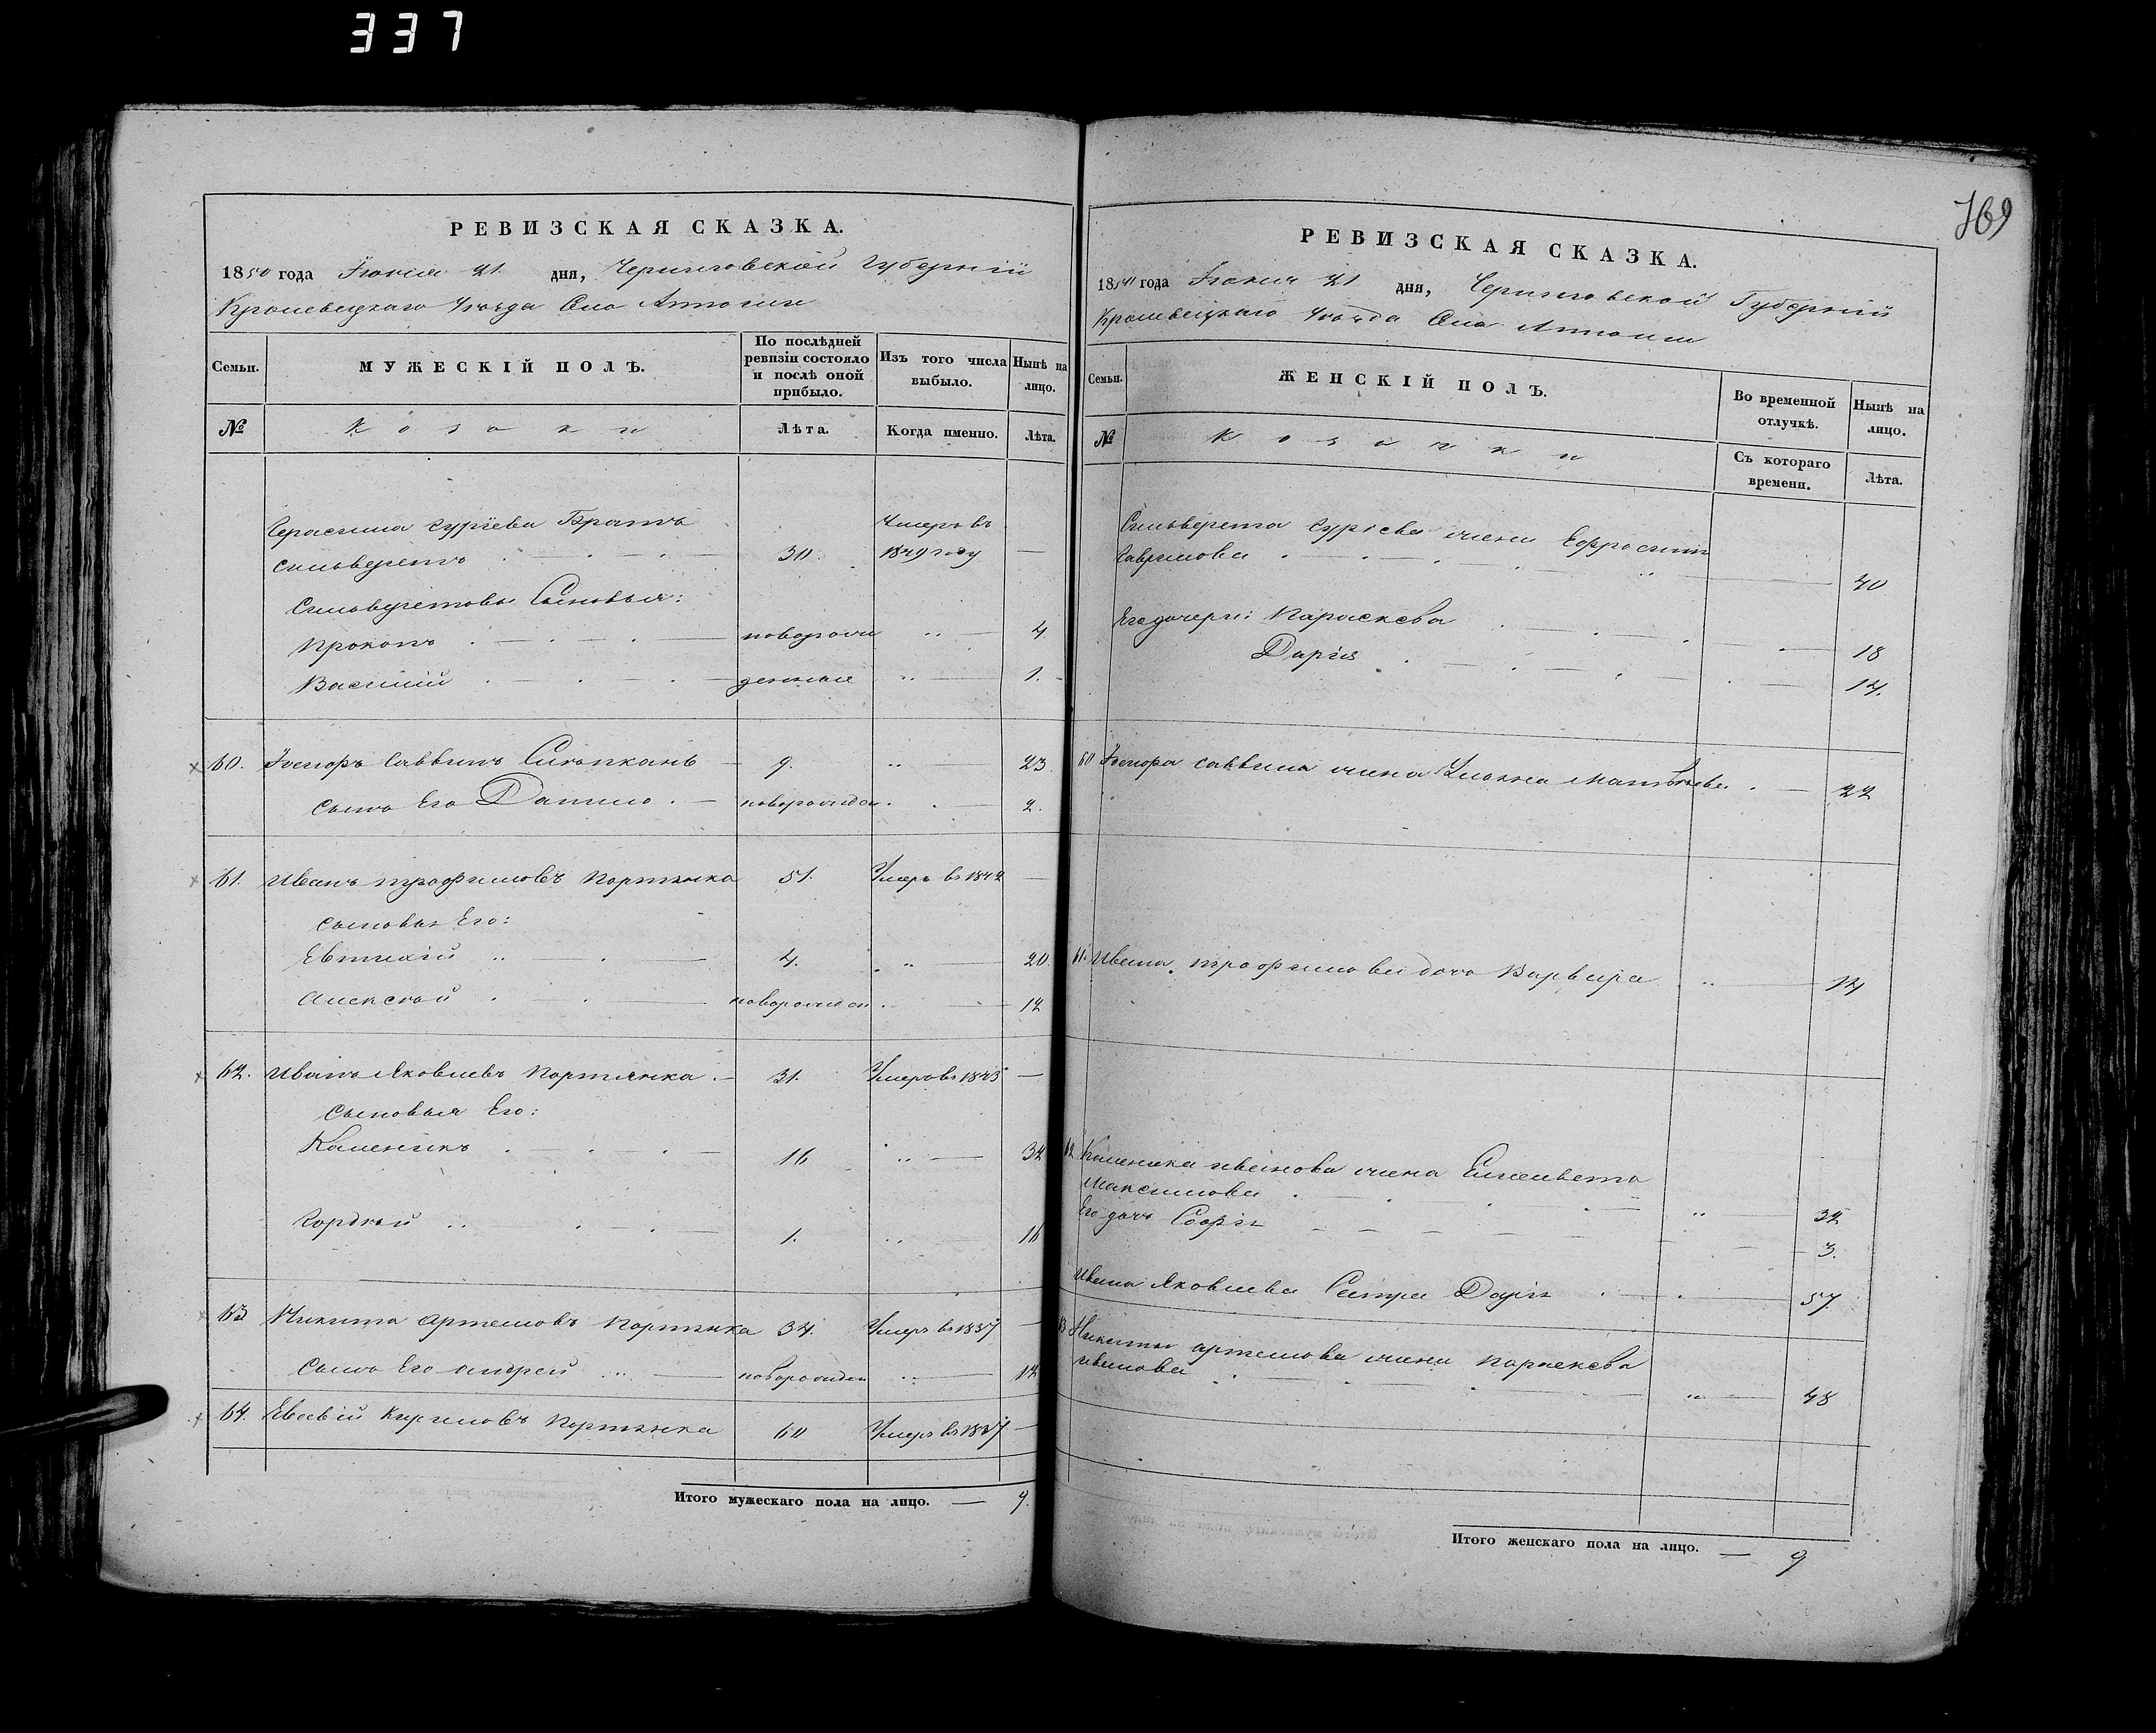 337
РЕВИЗСКАЯ СКАЗКА.
1850 года Іюня 21 дня, Черниговской Губерніи
Кролевецкаго Уезда Села
Семьи.
МУЖЕСКІЙ ПОЛЪ.
По послѣдней ревизіи состояло и послѣ оной прибыло.
Изъ того числа выбыло.
Нынѣ на лицо.
№
Козаки
Лѣта.
Когда именно.
Лѣта.
Герасима Гуріева Братъ
Сильверстъ 30. Умеръ въ 1849 году —
Сильверстовы Сыновья:
Прокопъ новорож 4
Василій денные 1.
60. Савинъ 9. 23
Сынъ Его Данило новорожден 2.
61. Иванъ Трофимовъ Портянка 51. Умеръ въ 1842 —
Сыновья Его:
Евтихій 4. 20.
Алексѣй новорожден 12
62. Иванъ Яковлевъ Портянка 31. Умеръ въ 1843 —
Сыновья Его:
Каленикъ 16 32
Гордѣй 1. 16
63 Никита Артемовъ Портянка 34. Умеръ въ 1837 —
Сынъ Его Андрей новорожден 12
64. Евсевій Кириловъ Портянка 60 Умеръ въ 1837 —
Итого мужескаго пола на лицо. — 9.
769
РЕВИЗСКАЯ СКАЗКА.
1850 года Іюня 21 дня, Черниговской Губерніи
Кролевецкаго Уезда Села
Семьи.
ЖЕНСКІЙ ПОЛЪ.
Во временной отлучкѣ.
Нынѣ на лицо.
№
Козачки
Съ котораго времени.
Лѣта.
Сильверста Гуріева жена Ефросинія
Гаврилова 40
Его дочери: Параскева 18
Дарія 14.
60 Савина жена Ульяна Матвѣева 22
61. Ивана Трофимова дочь Варвара 14
62 Калиника Иванова жена Елисавета
Максимова 32
Его дочь Софія 3.
Ивана Яковлева Сестра Дарія 57
63 Никиты Артемова жена Параскева
Иванова 48
Итого женскаго пола на лицо. — 9